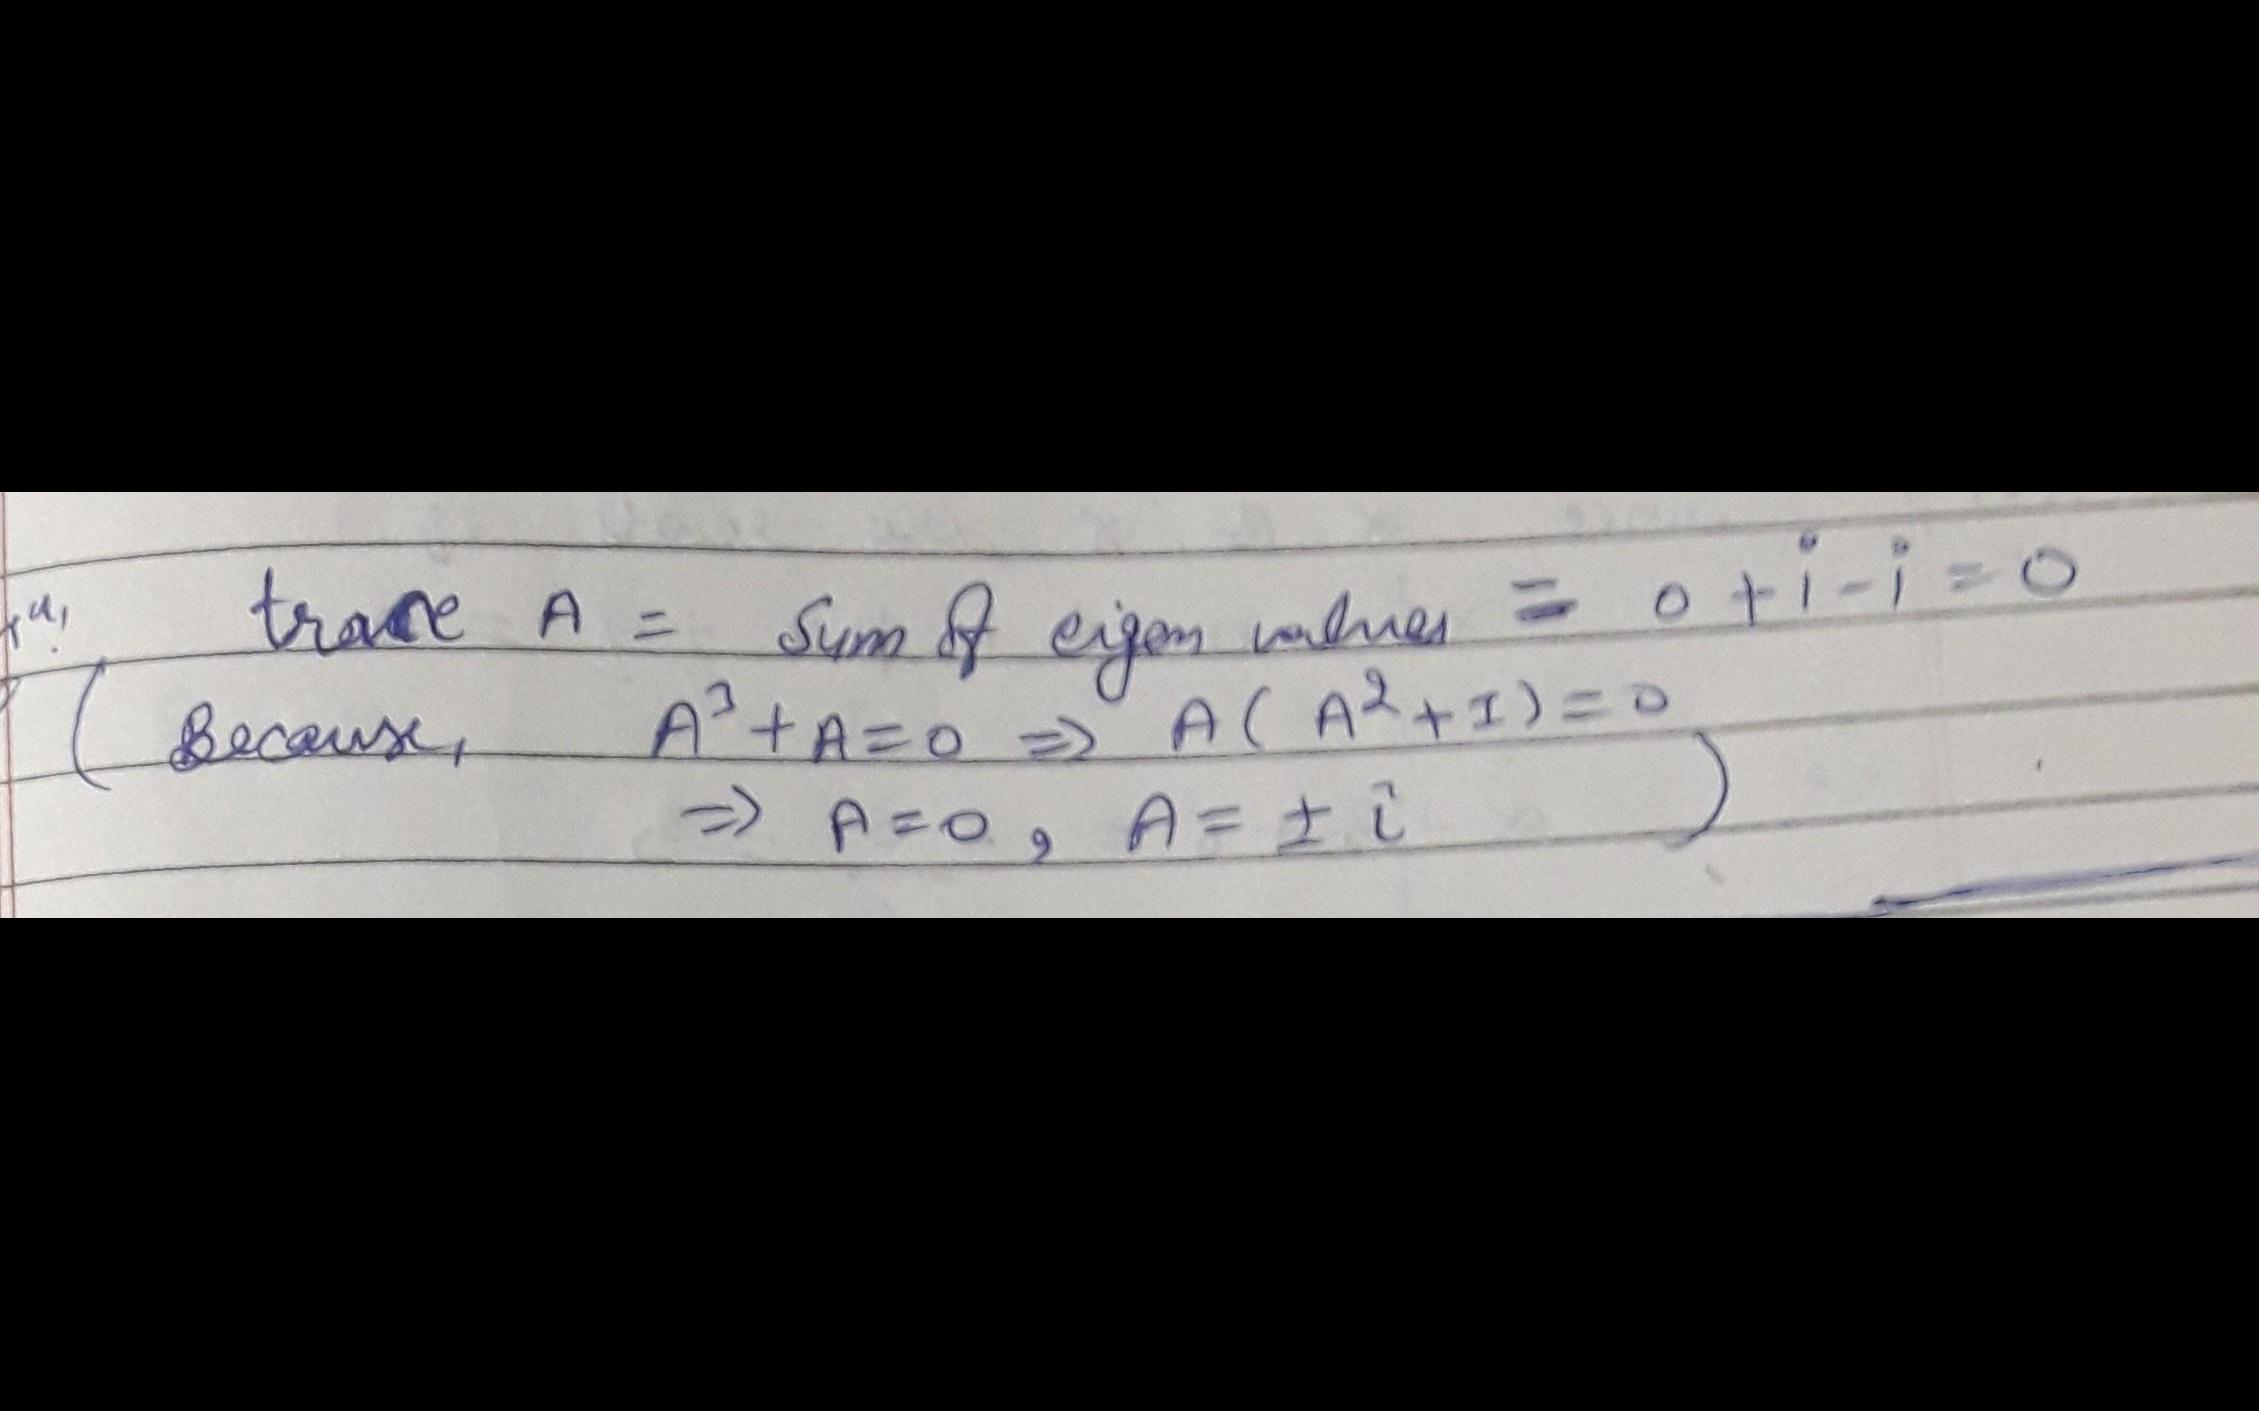 trace A = Sum of eigen values = 0 + i - i = 0
( Because, A³ + A = 0 ⇒ A ( A² + I ) = 0
⇒ A = 0 , A = ± i )